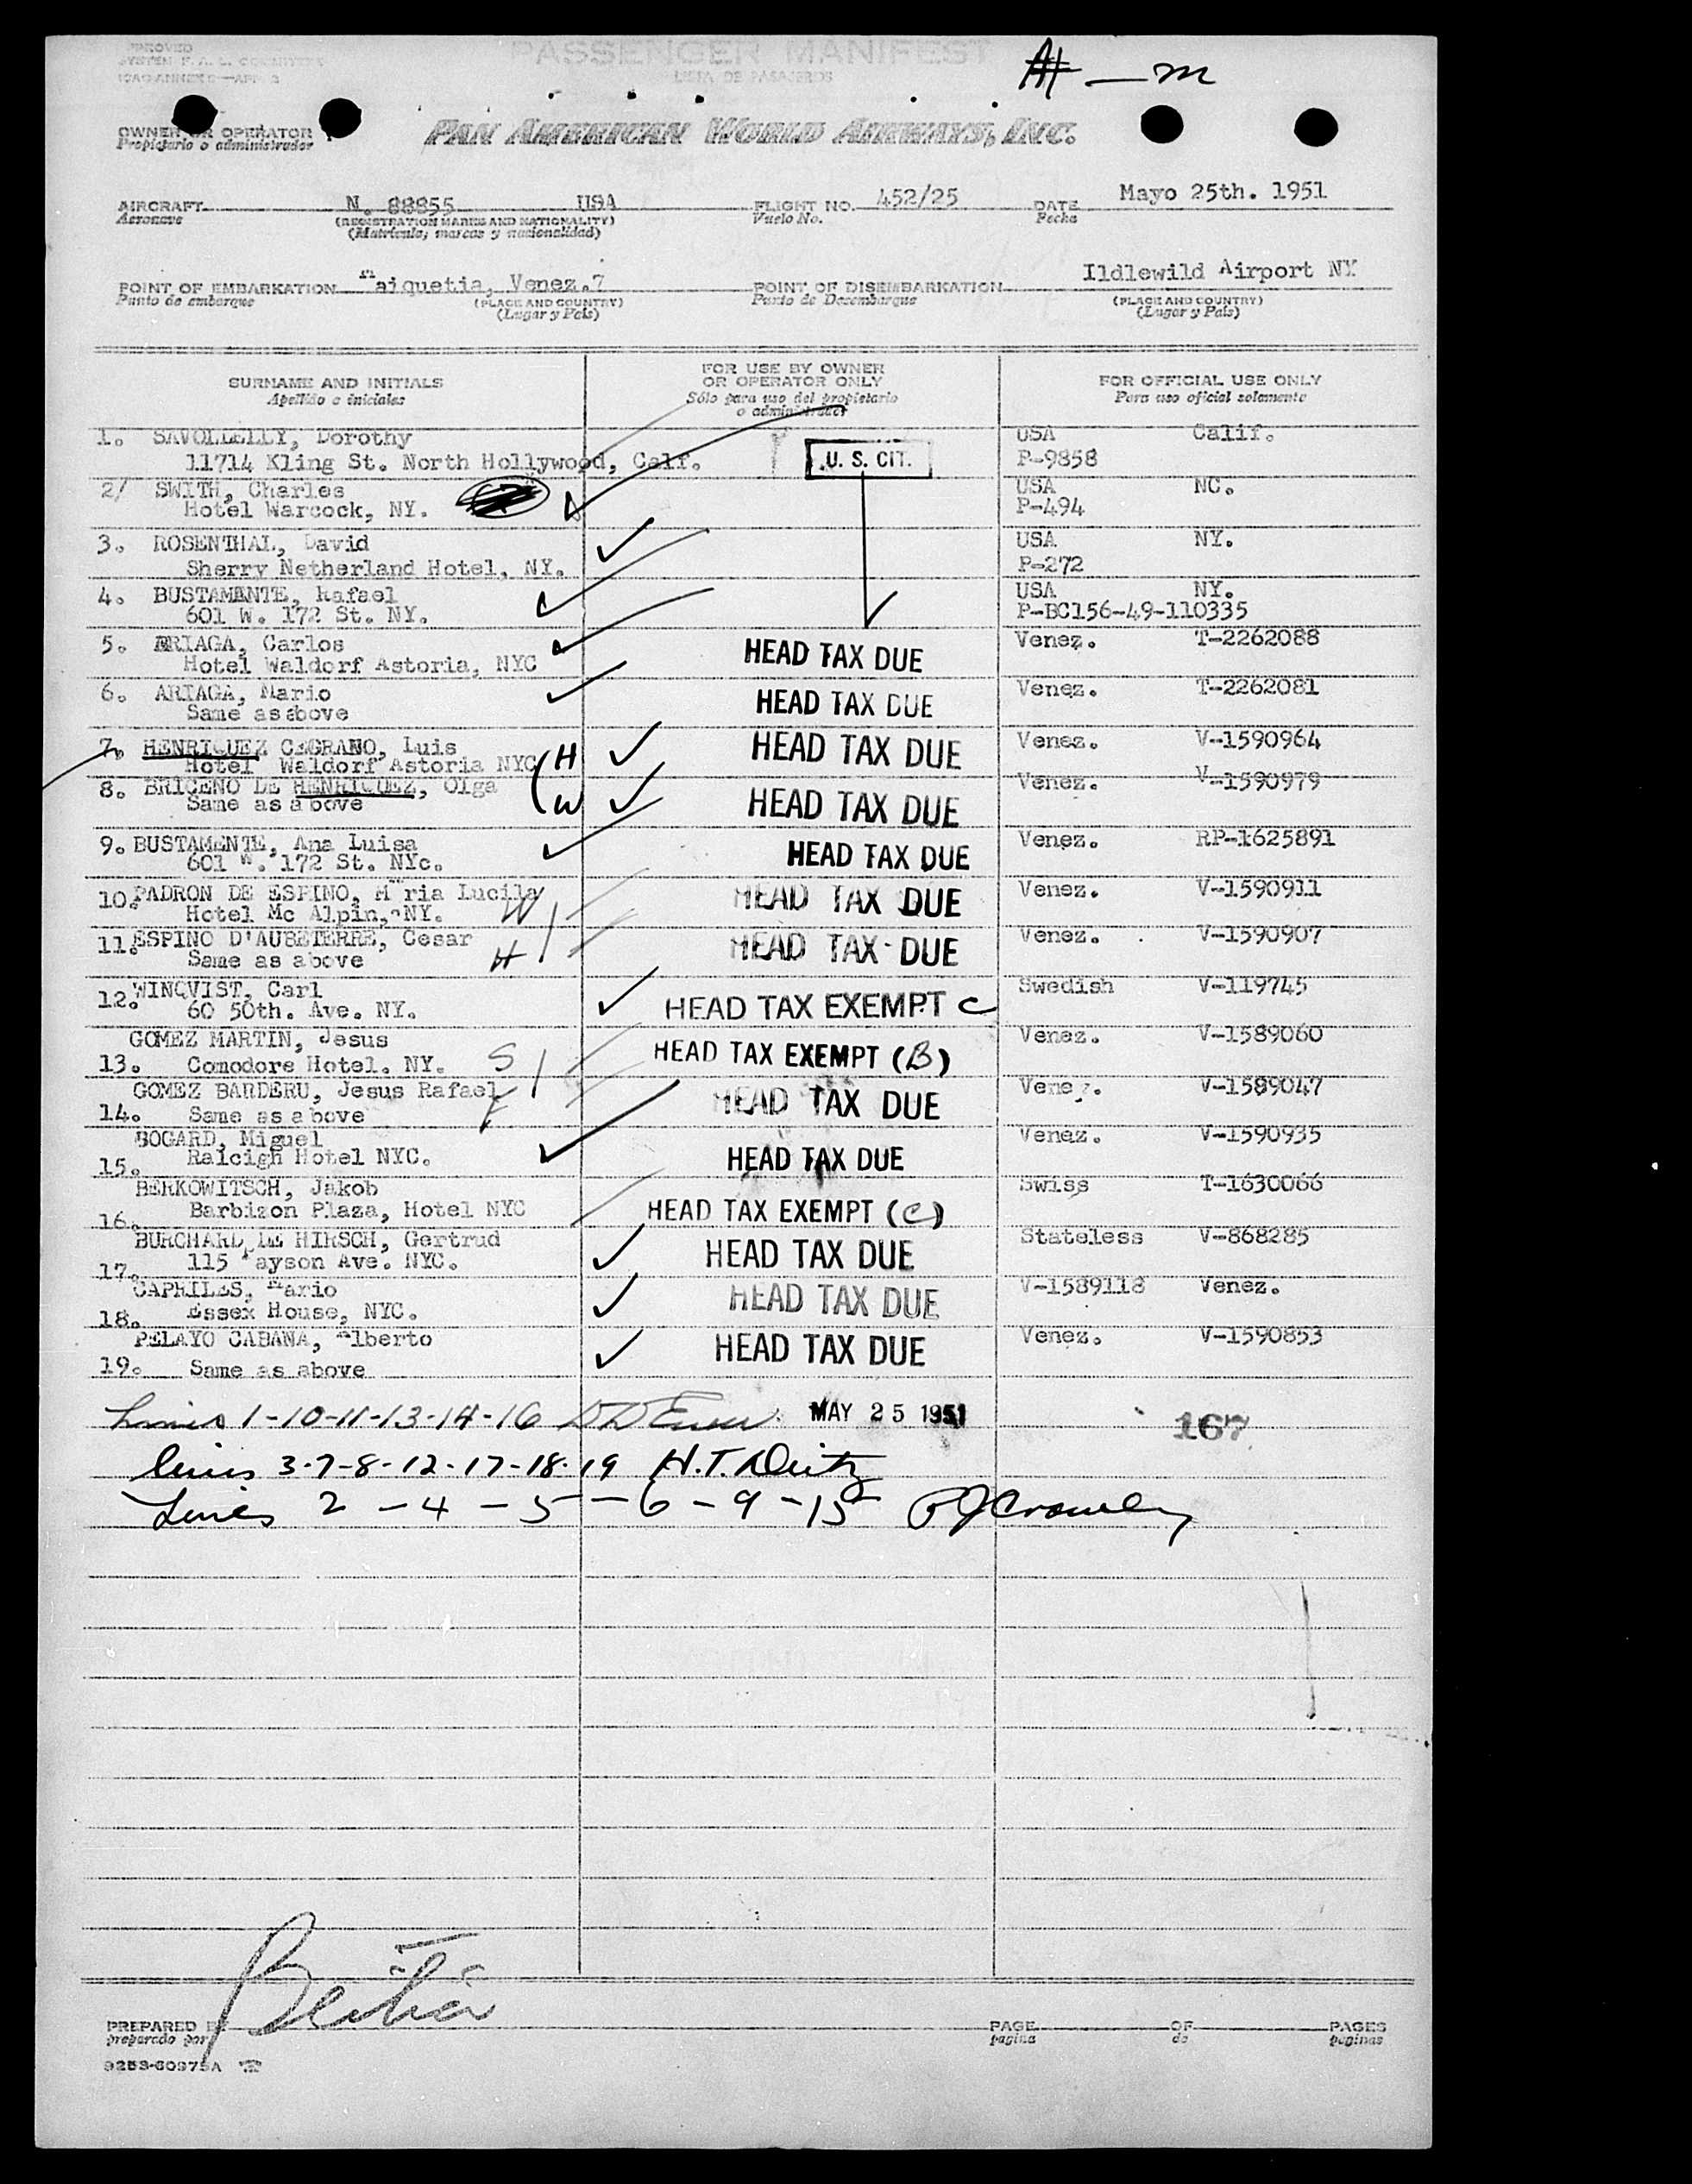 PASSENGER MANIFEST
LISTA DE PASAJEROS
OWNER OR OPERATOR
Propietario o administrador
PAN AMERICAN WORLD AIRWAYS, INC.
AIRCRAFT N. 88855 USA FLIGHT NO. 452/25 DATE Mayo 25th. 1951
Aeronave (REGISTRATION MARKS AND NATIONALITY) Vuelo No. Fecha
(Matrícula, marcas y nacionalidad)
POINT OF EMBARKATION Maiquetia, Venez.7 POINT OF DISEMBARKATION Ildlewild Airport NY
Punto de embarque (PLACE AND COUNTRY) Punto de Desembarque (PLACE AND COUNTRY)
(Lugar y País) (Lugar y País)
SURNAME AND INITIALS FOR USE BY OWNER OR OPERATOR ONLY FOR OFFICIAL USE ONLY
Apellido e iniciales Sólo para uso del propietario o administrador Para uso oficial solamente
1. Dorothy USA Calif.
11714 Kling St. North Hollywood, Calf. U. S. CIT. P-9858
2/ SWITH, Charles USA NC.
Hotel Warcock, NY. P-494
3. ROSENTHAL, David USA NY.
Sherry Netherland Hotel, NY. P-272
4. BUSTAMANTE, Rafael USA NY.
601 W. 172 St. NY. P-BC156-49-110335
5. ARIAGA, Carlos HEAD TAX DUE Venez. T-2262088
Hotel Waldorf Astoria, NYC
6. ARIAGA, Mario HEAD TAX DUE Venez. T-2262081
Same as above
7. HENRIQUEZ CEGRANO, Luis H HEAD TAX DUE Venez. V-1590964
Hotel Waldorf Astoria NYC
8. BRICENO DE HENRIQUEZ, Olga W HEAD TAX DUE Venez. V-1590979
Same as above
9. BUSTAMENTE, Ana Luisa HEAD TAX DUE Venez. RP-1625891
601 W. 172 St. NYc.
10. PADRON DE ESPINO, Maria Lucila W HEAD TAX DUE Venez. V-1590911
Hotel Mc Alpin, NY.
11. ESPINO D'AUBETERRE, Cesar H HEAD TAX DUE Venez. V-1590907
Same as above
12. WINQVIST, Carl HEAD TAX EXEMPT C Swedish V-119745
60 50th. Ave. NY.
GOMEZ MARTIN, Jesus HEAD TAX EXEMPT (B) Venez. V-1589060
13. Comodore Hotel. NY. S
GOMEZ BARDERU, Jesus Rafael F HEAD TAX DUE Venez. V-1589047
14. Same as above
BOGARD, Miguel HEAD TAX DUE Venez. V-1590935
15. Raleigh Hotel NYC.
BERKOWITSCH, Jakob HEAD TAX EXEMPT (C) Swiss T-1630066
16. Barbizon Plaza, Hotel NYC
BURCHARD DE HIRSCH, Gertrud HEAD TAX DUE Stateless V-868285
17. 115 Payson Ave. NYC.
CAPRILES, Mario HEAD TAX DUE V-1589118 Venez.
18. Essex House, NYC.
PELAYO CABANA, Alberto HEAD TAX DUE Venez. V-1590853
19. Same as above
Lines 1-10-11-13-14-16 MAY 25 1951 167
lines 3-7-8-12-17-18-19 H.T. Deitz
Lines 2-4-5-6-9-15 PJCrowley
PREPARED BY PAGE OF PAGES
preparado por pagina de paginas
9253-60975A